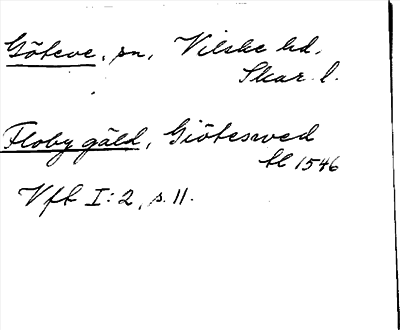 Göteve, sn, Vilske hd.
Skar. l.
Floby gäld, Giöteswed
tl 1546
Vft I:2, s. 11.